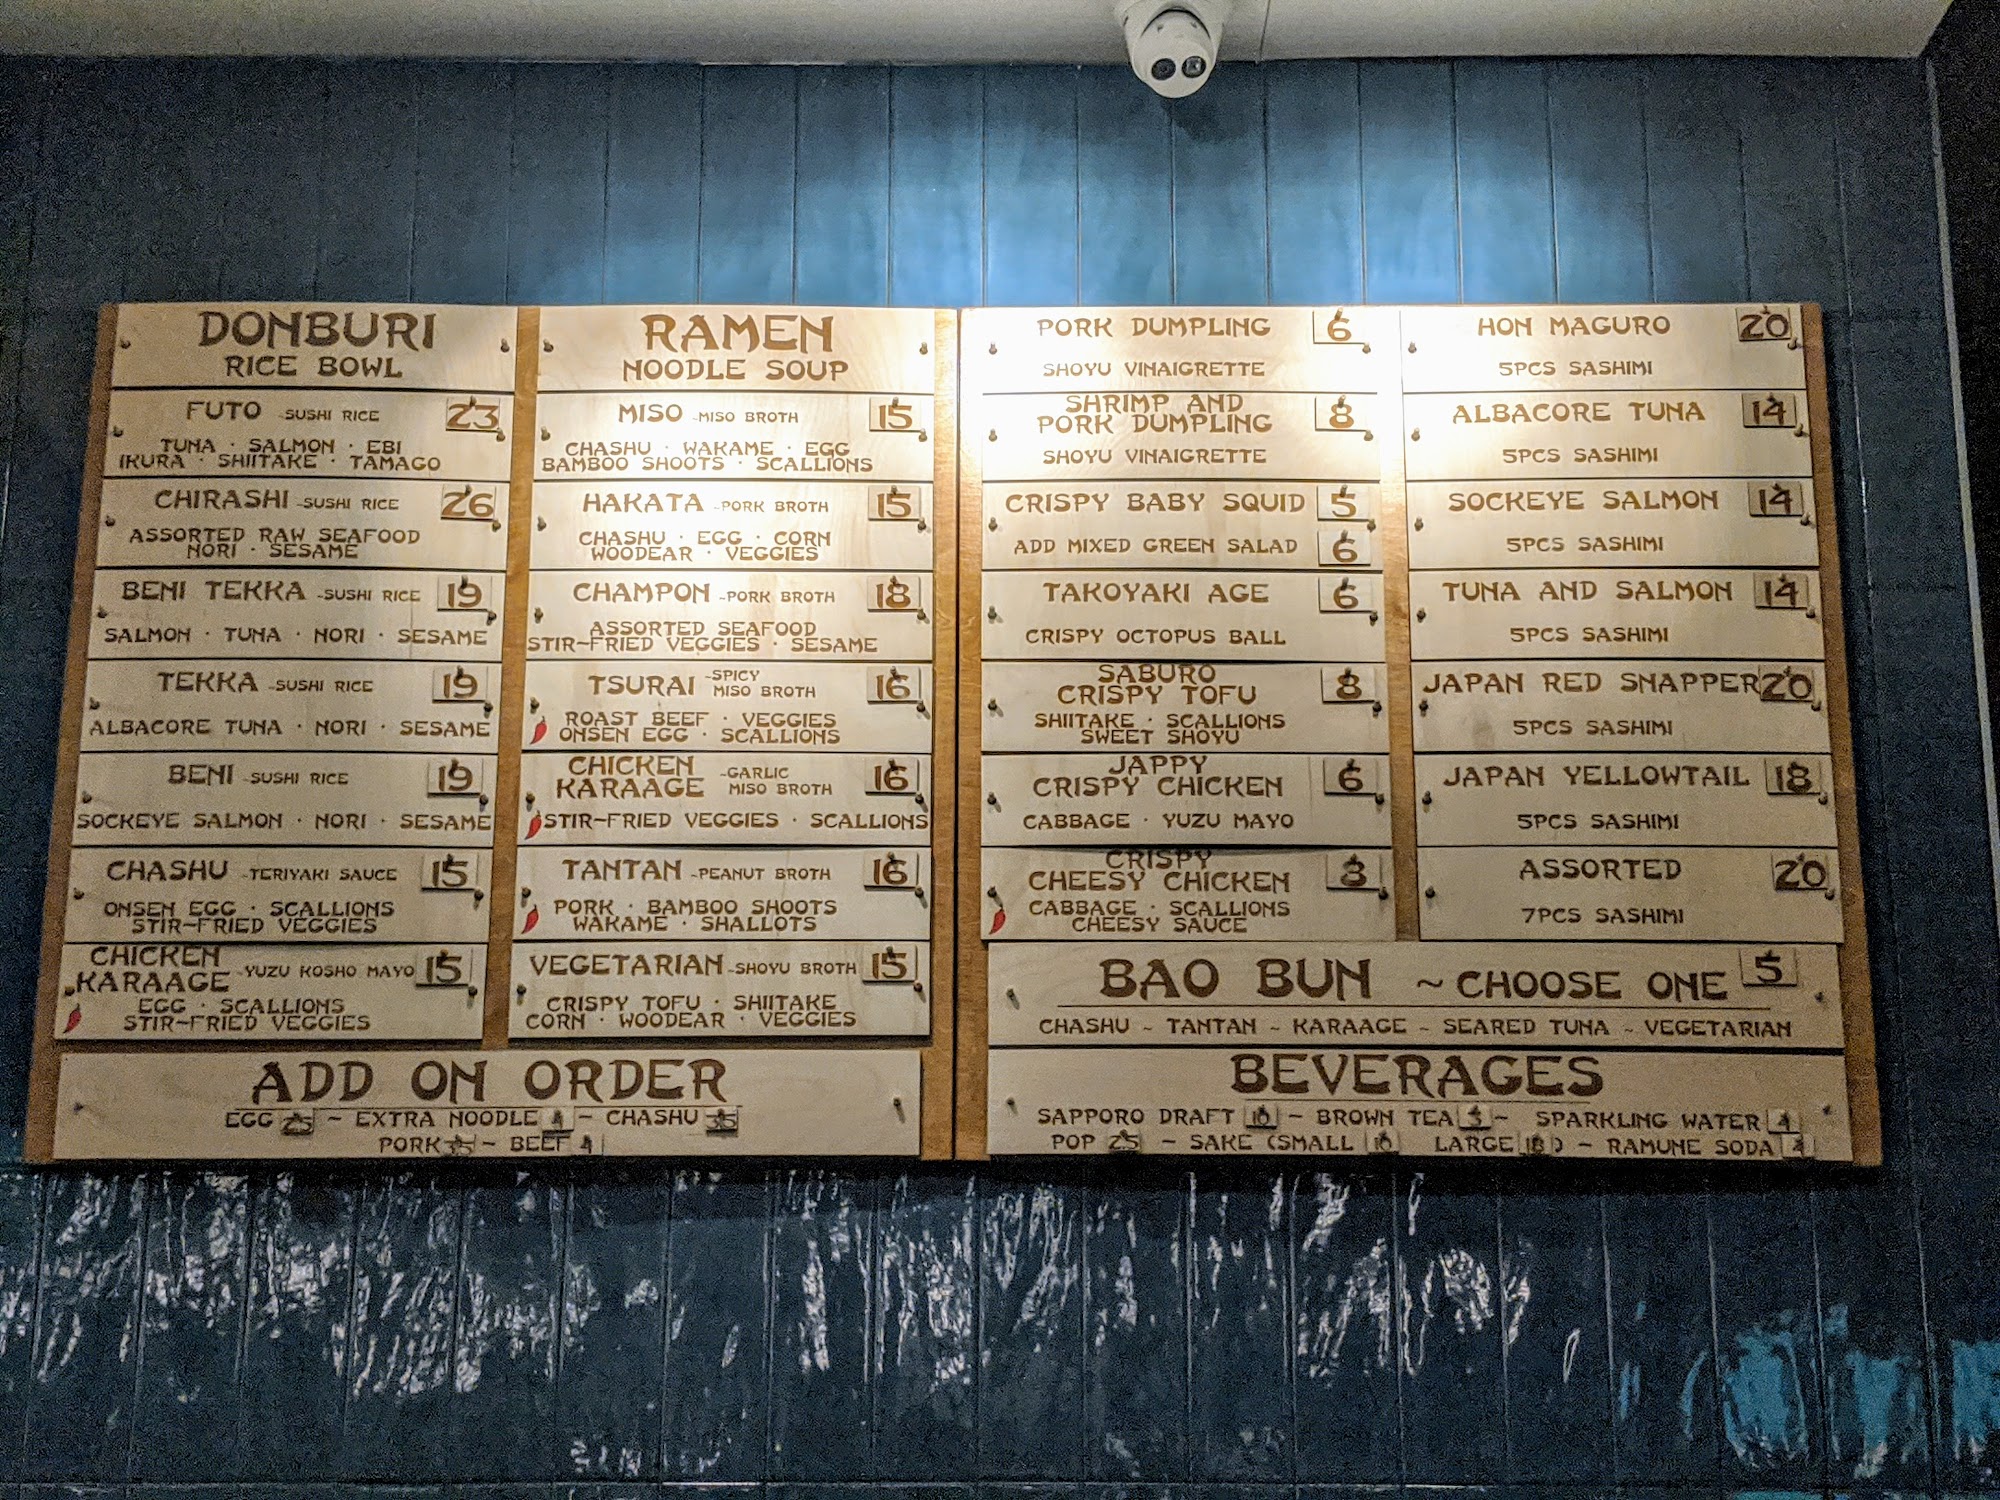 DONBURI
RICE BOWL
FUTO -SUSHI RICE 23
TUNA · SALMON · EBI
IKURA · SHIITAKE · TAMAGO
CHIRASHI -SUSHI RICE 26
ASSORTED RAW SEAFOOD
NORI · SESAME
BENI TEKKA -SUSHI RICE 19
SALMON · TUNA · NORI · SESAME
TEKKA -SUSHI RICE 19
ALBACORE TUNA · NORI · SESAME
BENI -SUSHI RICE 19
SOCKEYE SALMON · NORI · SESAME
CHASHU -TERIYAKI SAUCE 15
ONSEN EGG · SCALLIONS
STIR-FRIED VEGGIES
CHICKEN
KARAAGE -YUZU KOSHO MAYO 15
EGG · SCALLIONS
STIR-FRIED VEGGIES
RAMEN
NOODLE SOUP
MISO -MISO BROTH 15
CHASHU · WAKAME · EGG
BAMBOO SHOOTS · SCALLIONS
HAKATA -PORK BROTH 15
CHASHU · EGG · CORN
WOODEAR · VEGGIES
CHAMPON -PORK BROTH 18
ASSORTED SEAFOOD
STIR-FRIED VEGGIES · SESAME
TSURAI -SPICY MISO BROTH 16
ROAST BEEF · VEGGIES
ONSEN EGG · SCALLIONS
CHICKEN
KARAAGE -GARLIC MISO BROTH 16
STIR-FRIED VEGGIES · SCALLIONS
TANTAN -PEANUT BROTH 16
PORK · BAMBOO SHOOTS
WAKAME · SHALLOTS
VEGETARIAN -SHOYU BROTH 15
CRISPY TOFU · SHIITAKE
CORN · WOODEAR · VEGGIES
ADD ON ORDER
EGG 25 ~ EXTRA NOODLE 4 ~ CHASHU 35
PORK 35 ~ BEEF 4
PORK DUMPLING 6
SHOYU VINAIGRETTE
SHRIMP AND
PORK DUMPLING 8
SHOYU VINAIGRETTE
CRISPY BABY SQUID 5
ADD MIXED GREEN SALAD 6
TAKOYAKI AGE 6
CRISPY OCTOPUS BALL
SABURO
CRISPY TOFU 8
SHIITAKE · SCALLIONS
SWEET SHOYU
JAPPY
CRISPY CHICKEN 6
CABBAGE · YUZU MAYO
CRISPY
CHEESY CHICKEN
CABBAGE · SCALLIONS
CHEESY SAUCE
HON MAGURO 20
5PCS SASHIMI
ALBACORE TUNA 14
5PCS SASHIMI
SOCKEYE SALMON 14
5PCS SASHIMI
TUNA AND SALMON 14
5PCS SASHIMI
JAPAN RED SNAPPER 20
5PCS SASHIMI
JAPAN YELLOWTAIL 18
5PCS SASHIMI
ASSORTED 20
7PCS SASHIMI
BAO BUN ~ CHOOSE ONE 5
CHASHU ~ TANTAN ~ KARAAGE ~ SEARED TUNA ~ VEGETARIAN
BEVERAGES
SAPPORO DRAFT 10 ~ BROWN TEA 3 ~ SPARKLING WATER 4
POP 25 ~ SAKE (SMALL 10 LARGE 18) ~ RAMUNE SODA 4